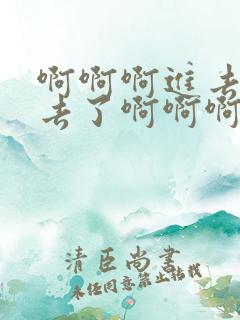 啊啊啊进去
去了啊啊啊
清臣尚书
未经同意禁止转载